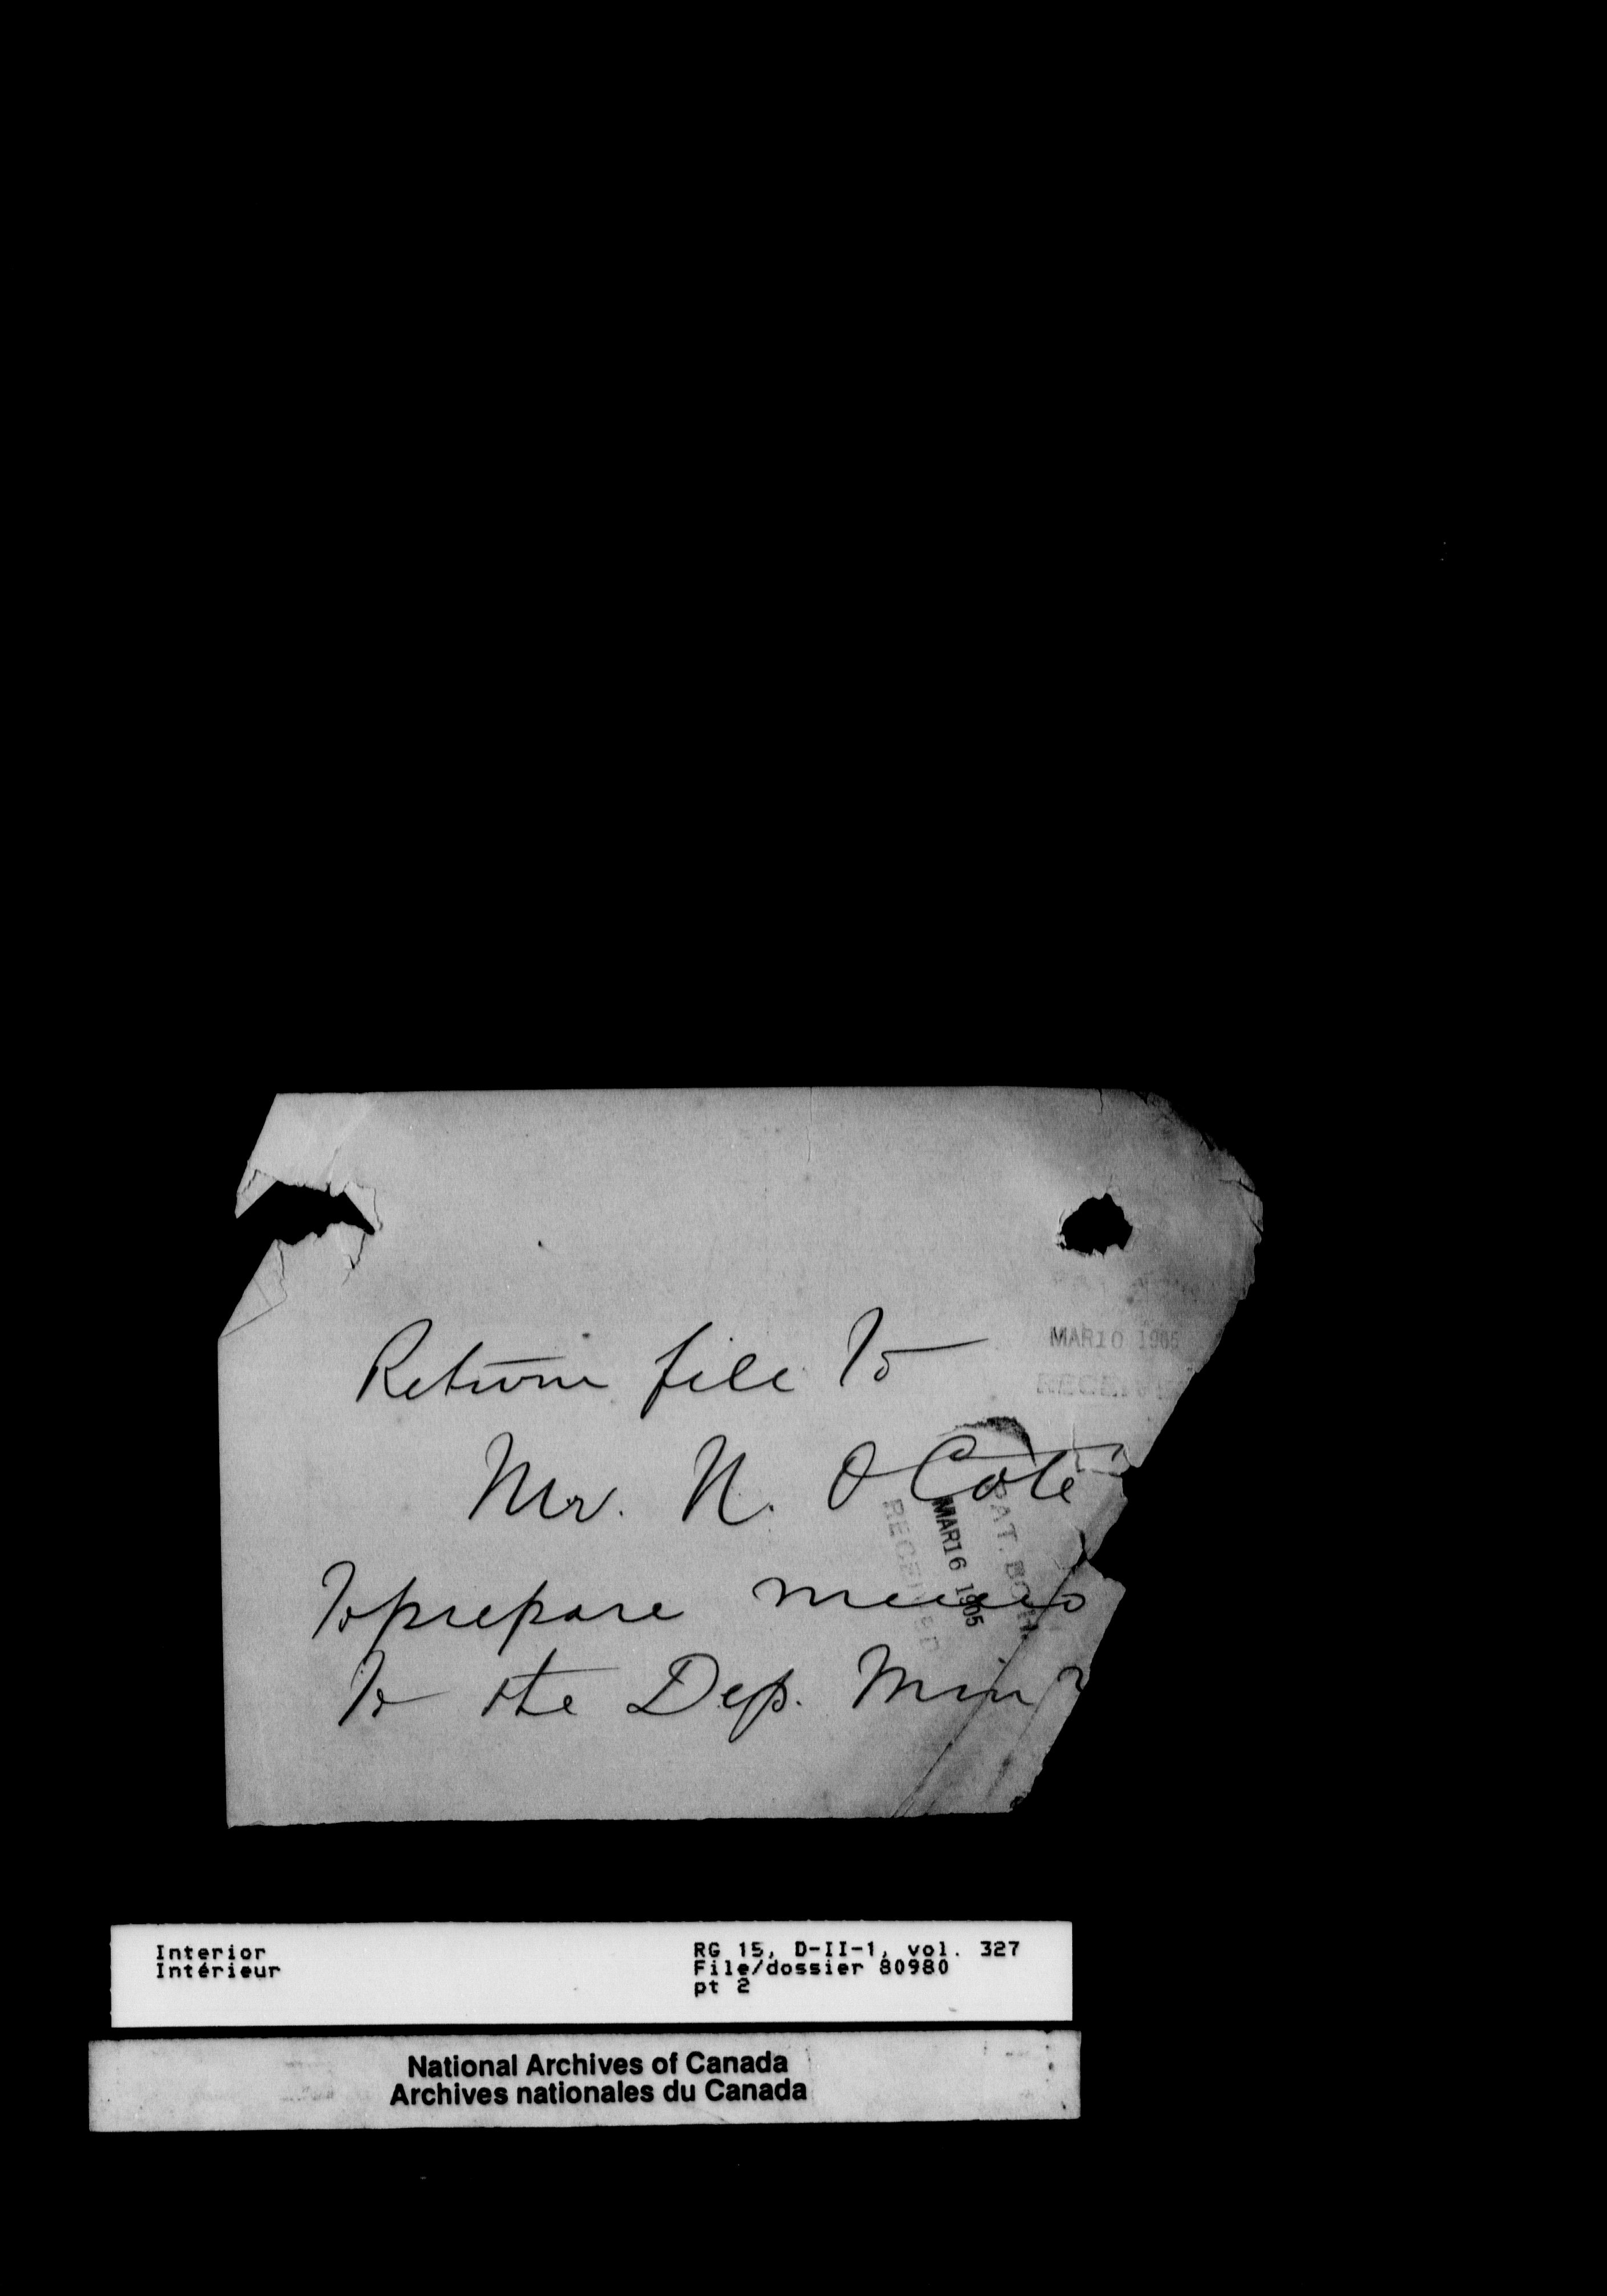 MAR 10 1905
RECEIVED
Return file to
Mr. N. O Cote
PAT. BCH.
MAR 16 1905
RECEIVED
to prepare memo
to the Dep. Minr
Interior
Intérieur
RG 15, D-II-1, vol. 327
File/dossier 80980
pt 2
National Archives of Canada
Archives nationales du Canada